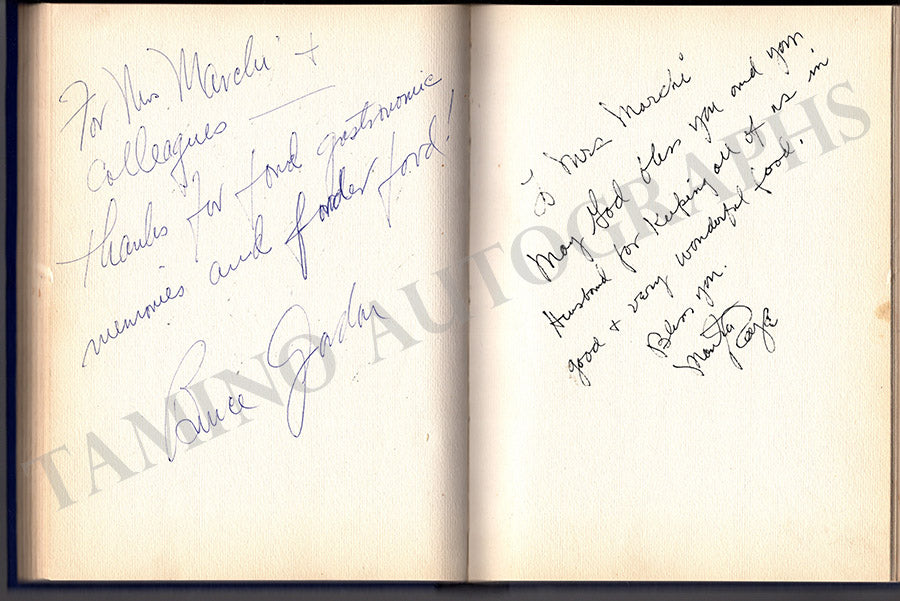 For Mrs. Marchi +
Colleagues —
thanks for fond gastronomic
memories and fonder food!
Bruce Gordon
To Mrs Marchi
May God bless you and your
Husband for keeping all of us in
good + very wonderful food.
Bless you.
Martha Raye
TAMINO AUTOGRAPHS